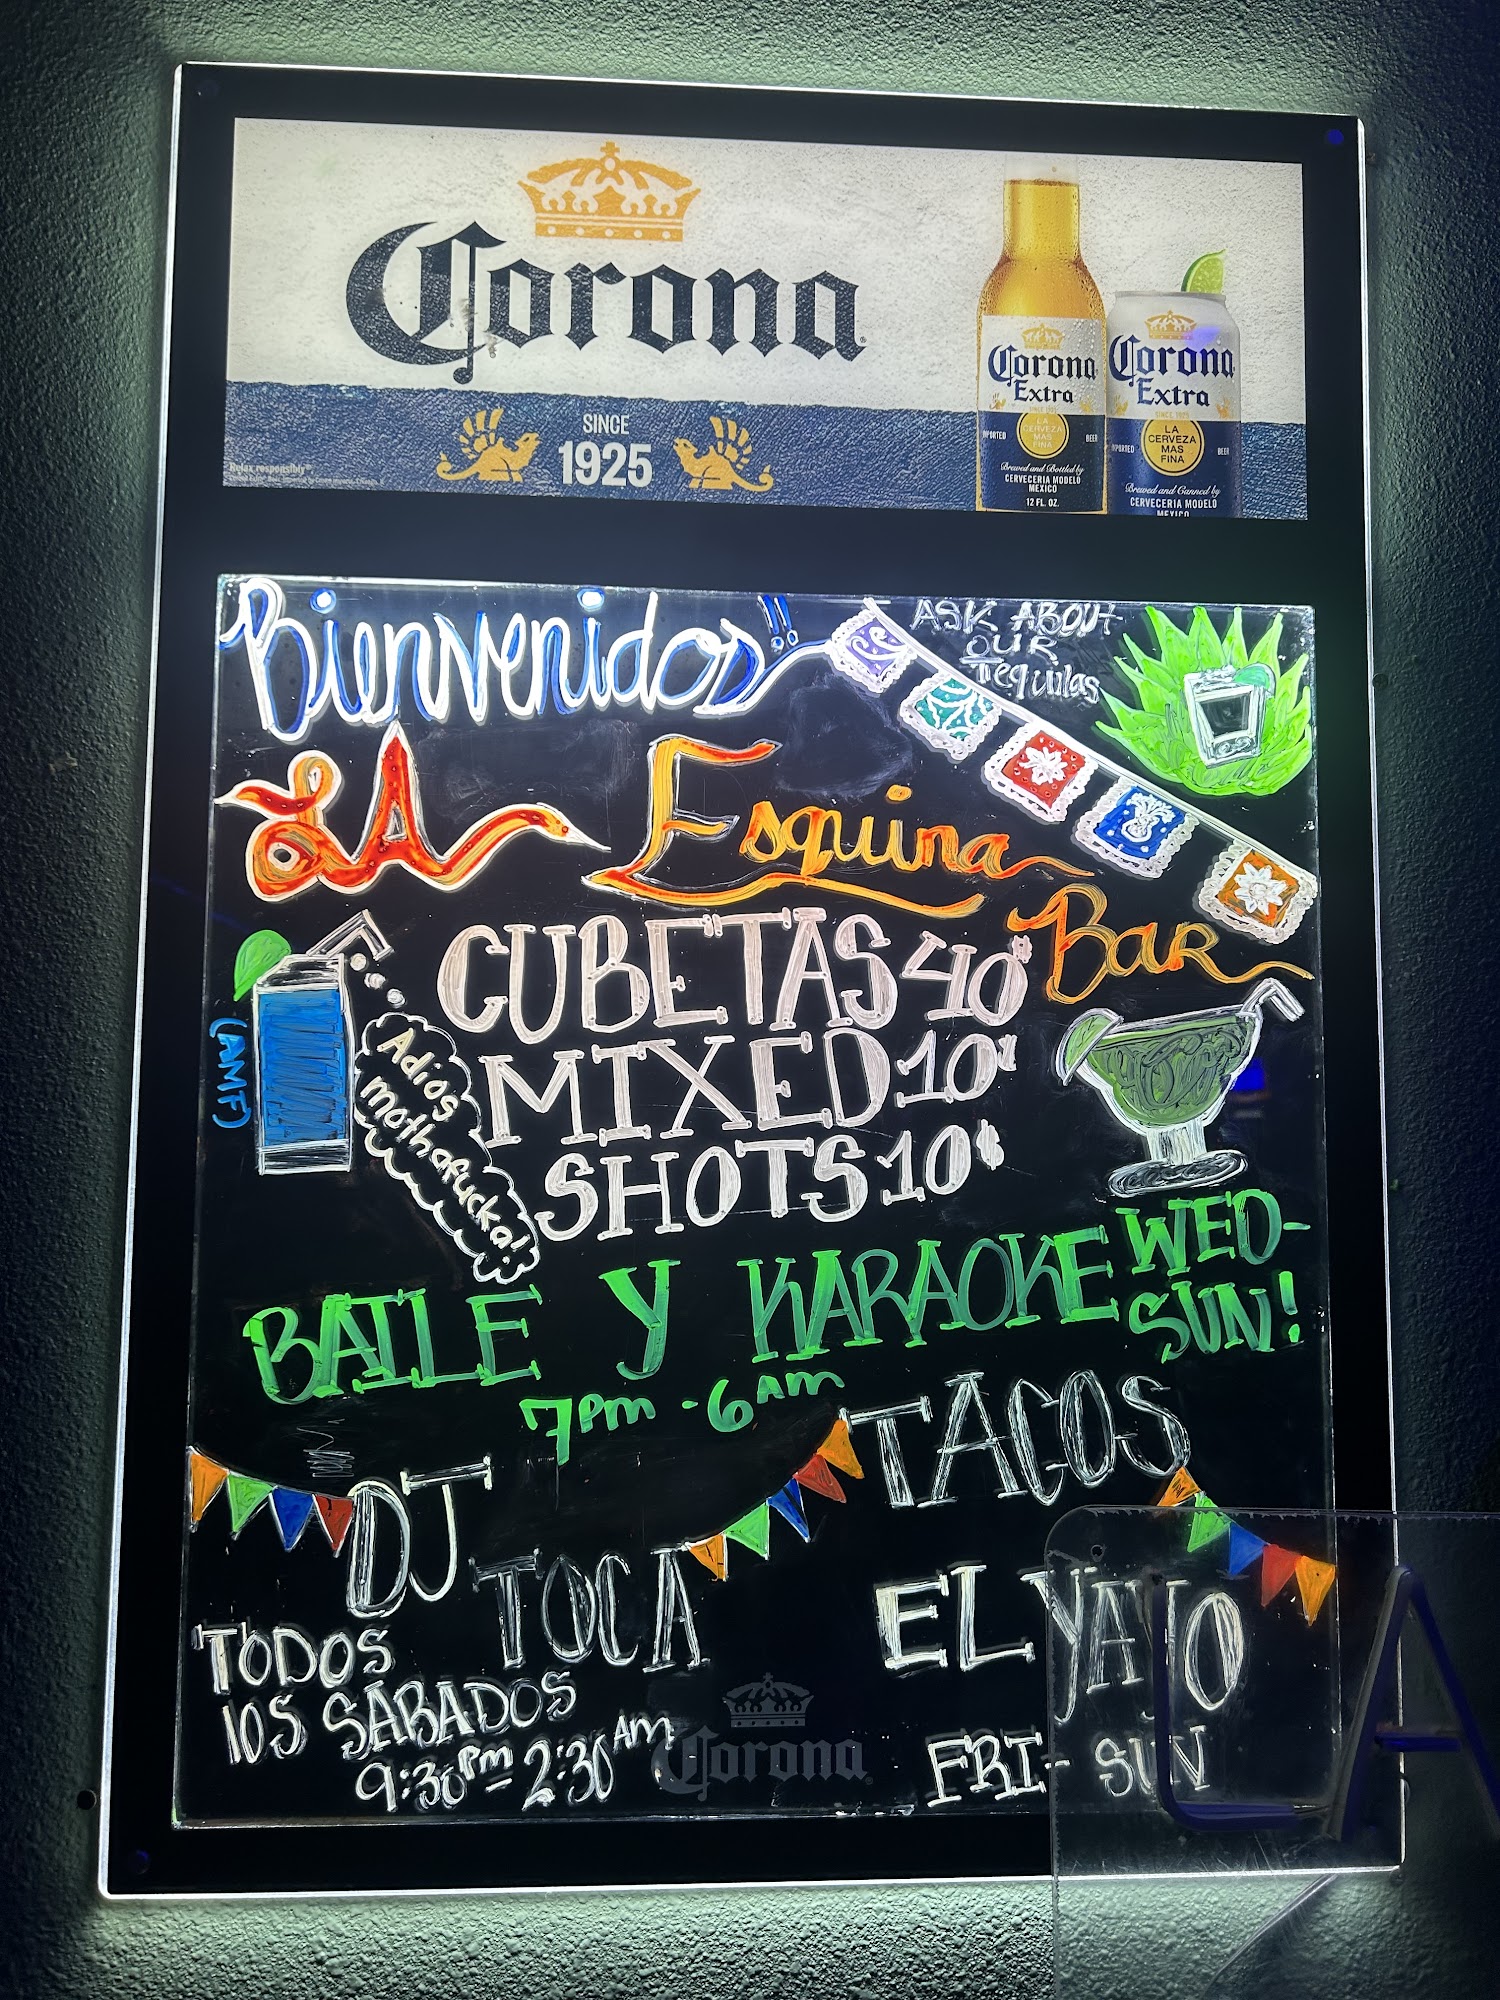 Corona
SINCE
1925
Relax responsibly®
Corona Extra
LA CERVEZA MAS FINA
IMPORTED BEER
Brewed and Bottled by
CERVECERIA MODELO
MEXICO
12 FL. OZ.
Corona Extra
SINCE 1925
LA CERVEZA MAS FINA
IMPORTED BEER
Brewed and Canned by
CERVECERIA MODELO
MEXICO
Bienvenidos!!
ASK ABOUT
OUR
Tequilas
LA Esquina
BAR
CUBETAS 40$
MIXED 10$
SHOTS 10$
(AMF)
Adios
mothafucka!
BAILE Y KARAOKE WED-
SUN!
7pm - 6AM
TACOS
EL YAYO
FRI - SUN
DJ
TOCA
TODOS
lOS SÁBADOS
9:30pm - 2:30AM
Corona
LA